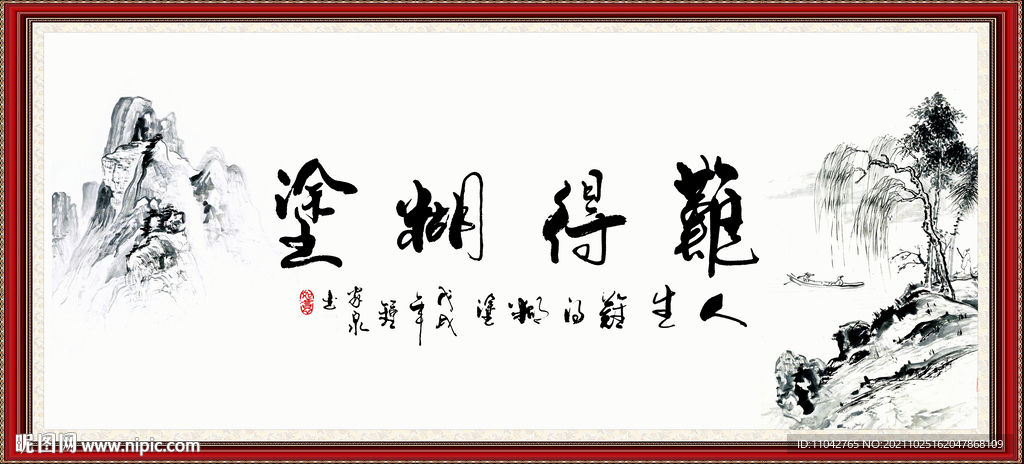 難得糊塗
人生難得糊塗 戊戌年 家泉 书
昵图网 www.nipic.com
ID:11042765 NO:20211025162047868109